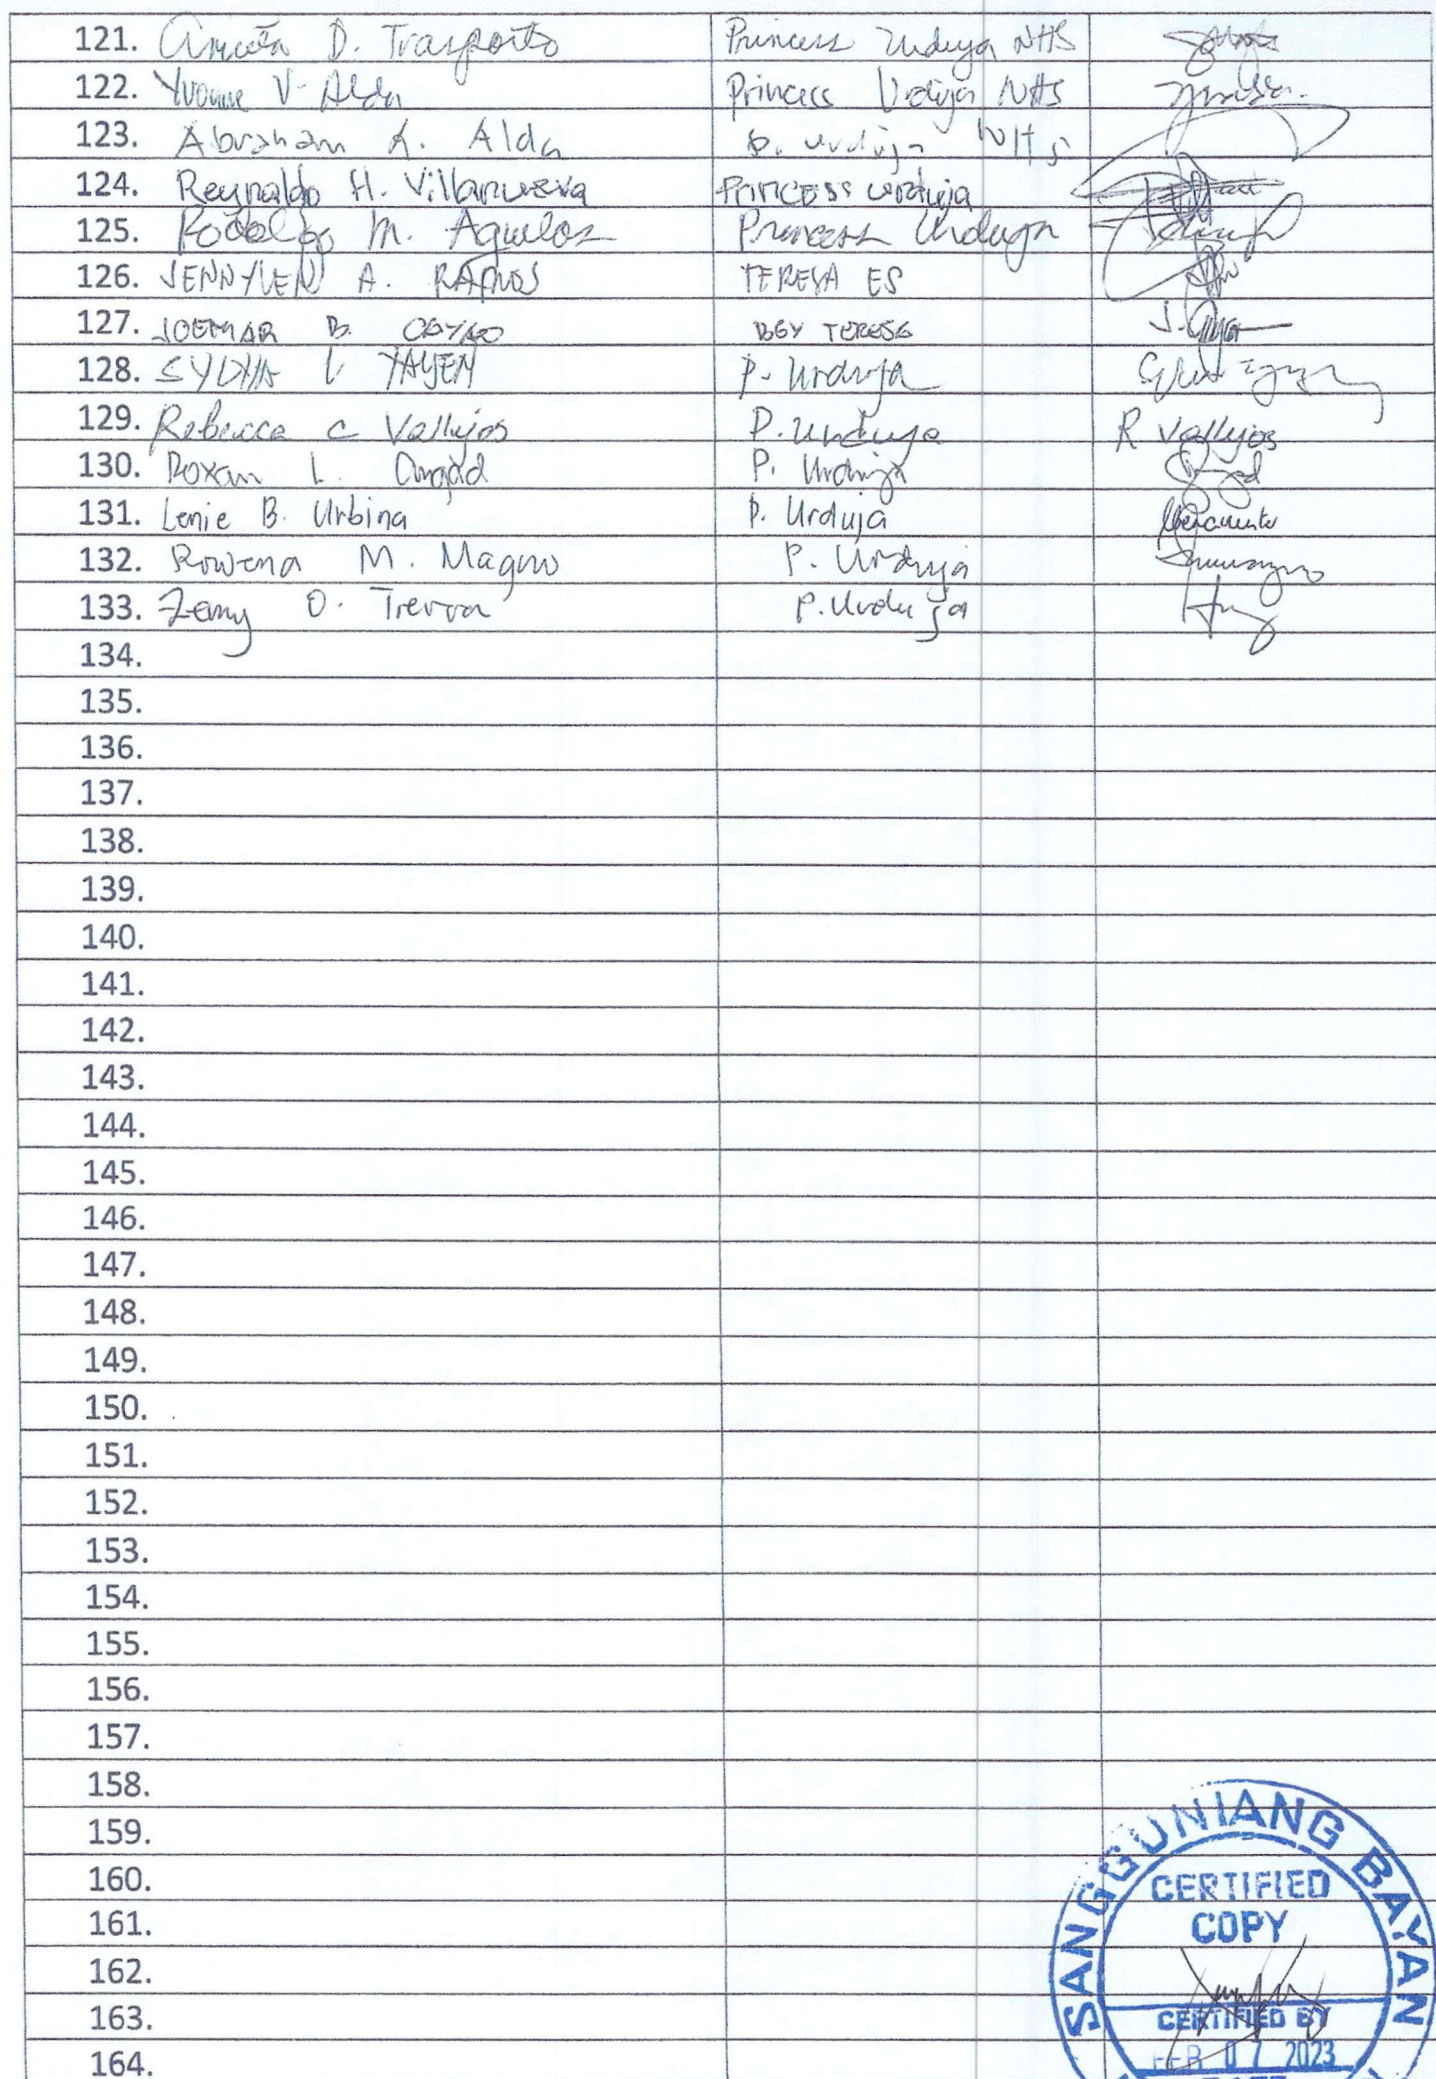 121. D. Trasporto Princess Urduja NHS
122. Yvonne V. Alda Princess Urduja NHS
123. Abraham A. Alda P. Urduja NHS
124. Reynaldo H. Villanueva Princess Urduja
125. Rodolfo M. Aguilos Princess Urduja
126. JENNYLEN A. RAMOS TERESA ES
127. JOEMAR B. BGY TERESA J.
128. SYLVIA L YAYEN P. Urduja
129. Rebecca C Vallejos P. Urduja R Vallejos
130. Roxan L. Angad P. Urduja
131. Lenie B. Urbina P. Urduja
132. Rowena M. Magno P. Urduja
133. Zeny O. P. Urduja
134.
135.
136.
137.
138.
139.
140.
141.
142.
143.
144.
145.
146.
147.
148.
149.
150.
151.
152.
153.
154.
155.
156.
157.
158.
159.
160.
161.
162.
163.
164.
SANGGUNIANG BAYAN
CERTIFIED
COPY
CERTIFIED BY
FEB 07 2023
DATE